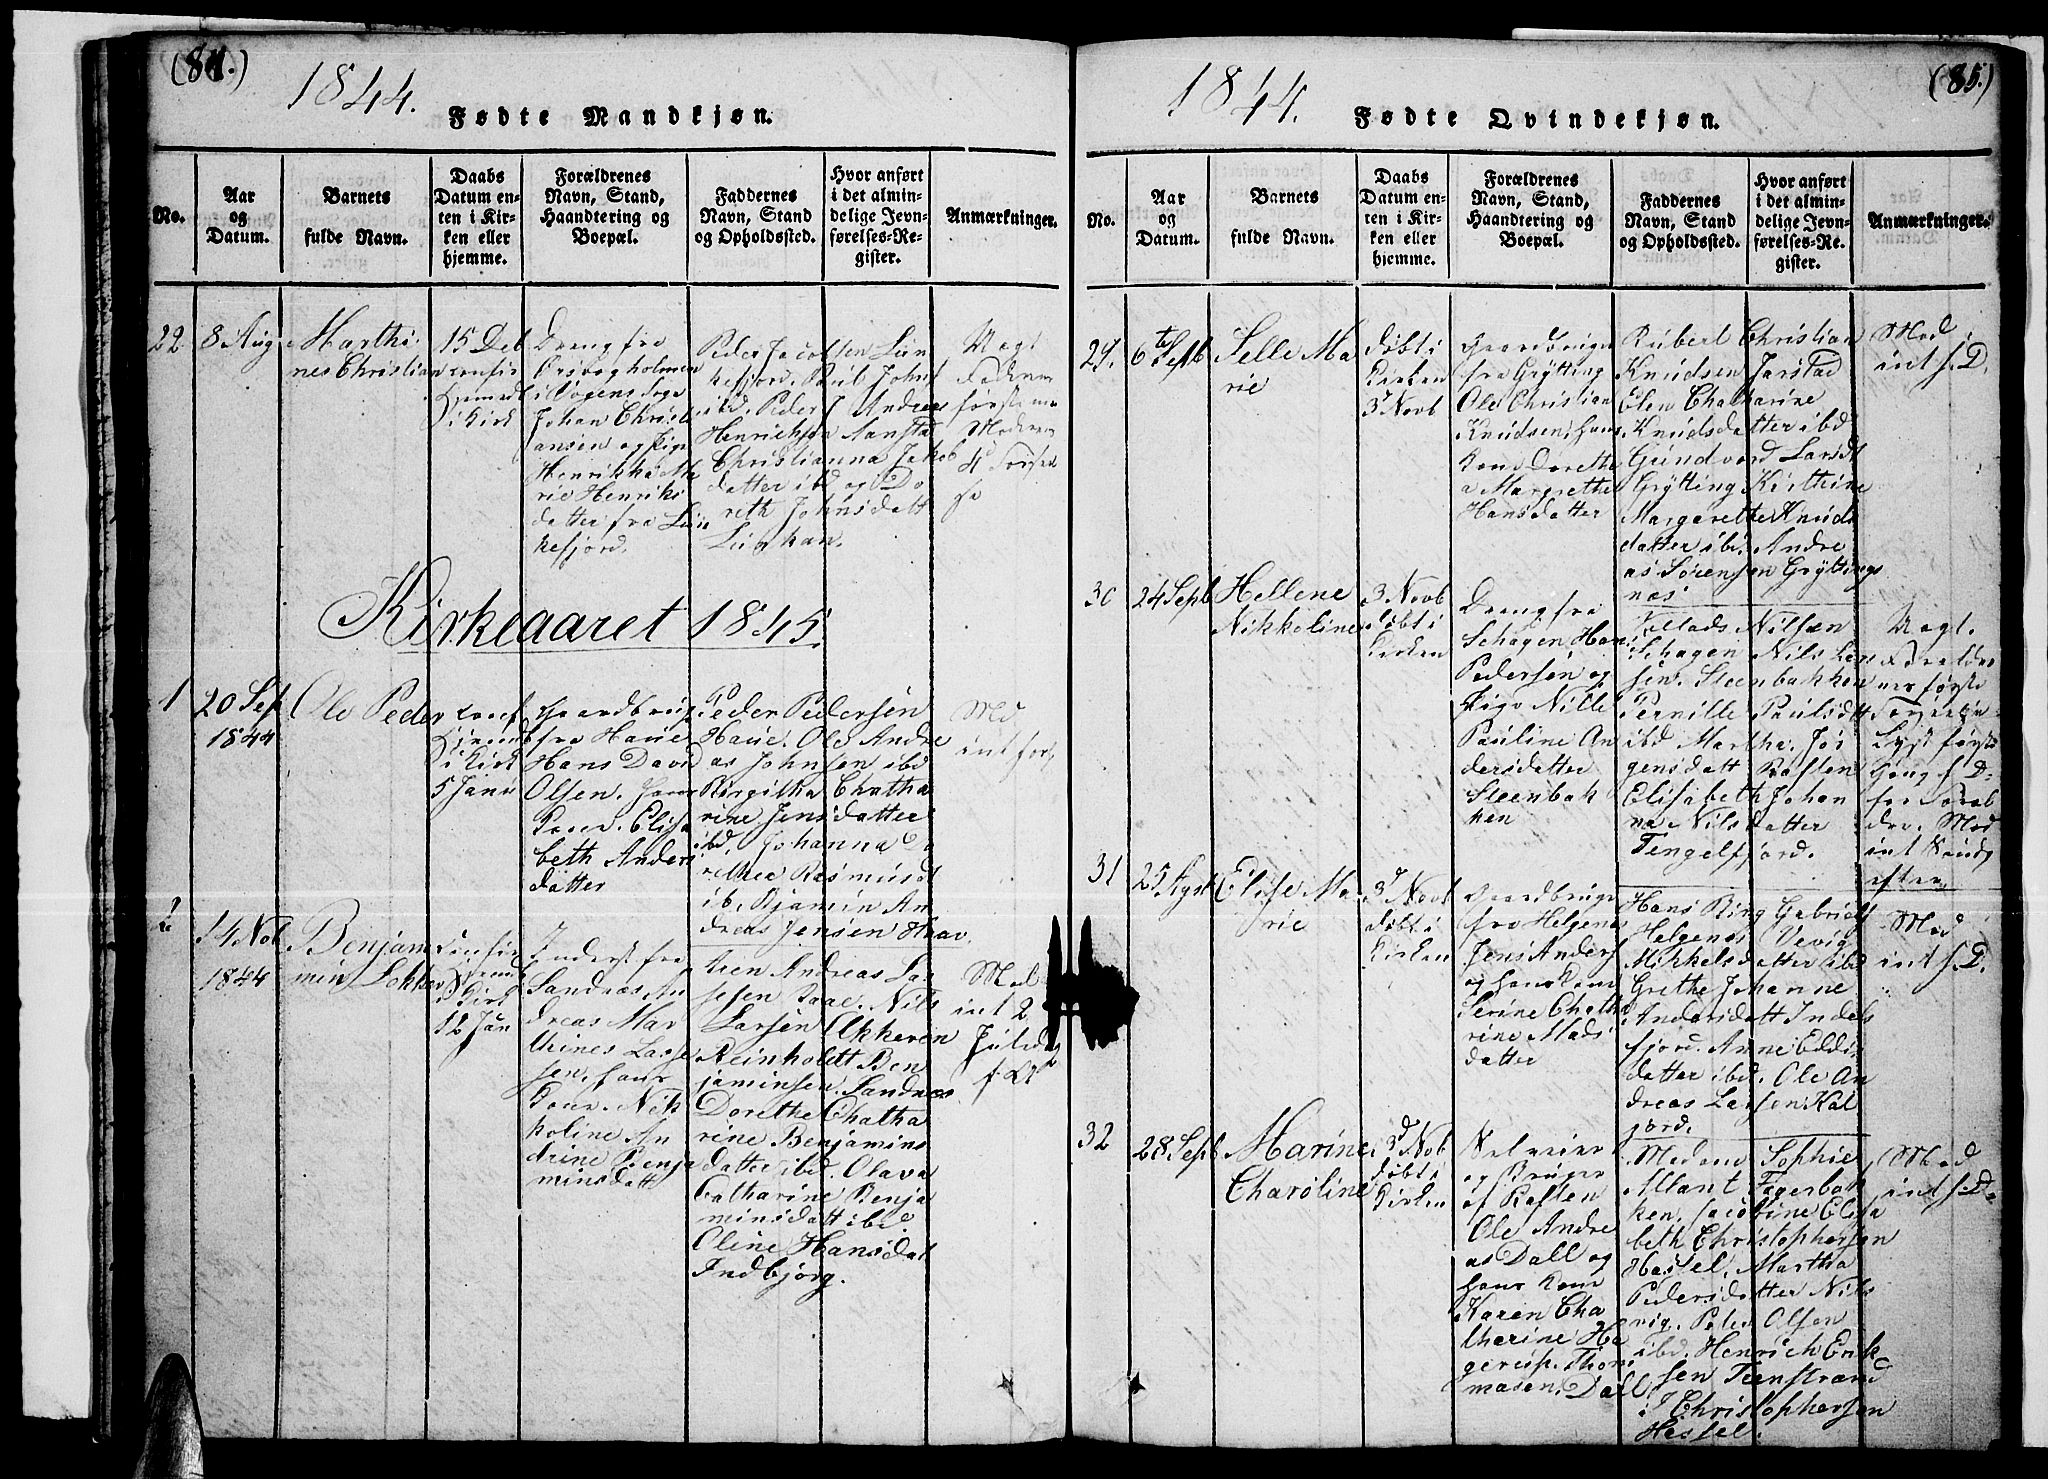 (84.)
1844.
Fødte Mandkjøn.
No.
Aar
og
Datum.
Barnets
fulde Navn.
Daabs
Datum en-
ten i Kir-
ken eller
hjemme.
Forældrenes
Navn, Stand,
Haandtering og
Boepæl.
Faddernes
Navn, Stand
og Opholdssted.
Hvor anført
i det almin-
delige Jevn-
førelses-Re-
gister.
Anmærkninger.
22
8 Aug
Marthi
nes Christian
15 Det
i Kirk
Dreng fra
Johan Christi
ansen og Pige
Henrikka Ma
rie Henriks
datter fra Lun
kefjord.
Peder Jacobsen Lun
kefjord. Paul Johns
ibd. Peder J Andreas
Henriksen Aanstad
Christianna Jakob
datter ibd og Do
reth Johnsdatt
Lunkan.
Uægt
første
Moderens
Kirkeaaret 1845.
1
20 Sep
1844
Ole Peder
i Kirk
5 Janu
Gaardbrug
fra Haue
Hans David
Olsen. hans
Kone. Elisa
beth Anders
datter
Peder Pedersen
Haue. Ole Andre
as Johnsen ibd
Birgitha Chatha
rine Jensdatter
ibd. Johanna Do
rthea Rasmusd
ib. Bjamin An
dreas Jensen Haue.
Md.
int for.
2
14 Nob
1844
Benjam
min Lokker
Kirk
12 Jan
Inderst fra
Sandnæs An
dreas Mar
thines Lasse
sen. hans
Kone. Nik
koline An
drine Benja
minsdatt
Aren Andreas Las
sesen Taae. Nils
Larsen Okkeren
Reinholdt Ben
jaminsen. Sandnæs
Dorethe Chatha
rine Benjamins
datter ibd. Olava
Catharine Benja
minsdatt ibd.
Oline Hansdat
Indbjorg.
Med
int 2
(85.)
1844.
Fødte Qvindekjøn.
No.
Aar
og
Datum.
Barnets
fulde Navn.
Daabs
Datum en-
ten i Kir-
ken eller
hjemme.
Forældrenes
Navn, Stand,
Haandtering og
Boepæl.
Faddernes
Navn, Stand
og Opholdssted.
Hvor anført
i det almin-
delige Jevn-
førelses-Re-
gister.
Anmærkninger.
29.
6te Septb
Selle Ma
rie
døbt i
Kirken
3 Novb
Gaardbruger
fra Grytting
Ole Christian
Knudsen, hans
Kone Dorethe
a Margrethe
Hansdatter
Rubert Christian
Knudsen Jarstad
Elen Chatharine
Knudsdatter ibd
Gundvord Larsdt
Grytting Kirstine
Margarethe Knuds
datter ibd. Andre
as Sørensen Gryttings
næs.
Mod
int f. D.
30
24 Septb
Hellene
Nikkoline
3 Novb
døbt i
Kirken
Dreng fra
Schagen Hans
Pedersen og
Pige Nille
Pauline An
dersdatter
Steenbak
ken
Tellads Nilsen
Schagen Nils Lars
sen. Steenbakken
Pernille Paulsdtt
ibd Martha Jør
gensdatt Raften
Elisabeth Johan
na Nilsdatter
Tengelfjord.
Uægt.
Forældre
nes første
første
Gang f D.
Mod
efter
31
25 Agst
Elise Ma
rie
3d Novb
døbt i
Kirken
Gaardbruger
fra Helgenæs
Jens Anders
og hans Kone
Serine Chatha
rine Mads
datter
Hans Ring Gabriels
Helgenæs Vevig
Mikkelsdatter ibd
Grethe Johanne
Andersdatt Indels
fjord. Anne Eddis
datter ibd. Ole An
dreas Larsen Kal
jord.
Mod
int f. D.
32
28 Septb
Marine
Charoline
3d Nob
døbt i
Kirken
Selveier
og Bruger
af Raften
Ole Andre
as Dall og
hans Kone
Karen Cha
tharine Ha
gerup. Thom
masen. Dall
Madame Sophie
Allant Fagerbak
ken. Jacobine Elisa
beth Christophersen
Hassel. Martha
Pedersdatter Nils
vig. Peder Olsen
ibd. Henrich Erik
sen Teenstrand
J Christophersen
Hessel.
Mod
int f. D.